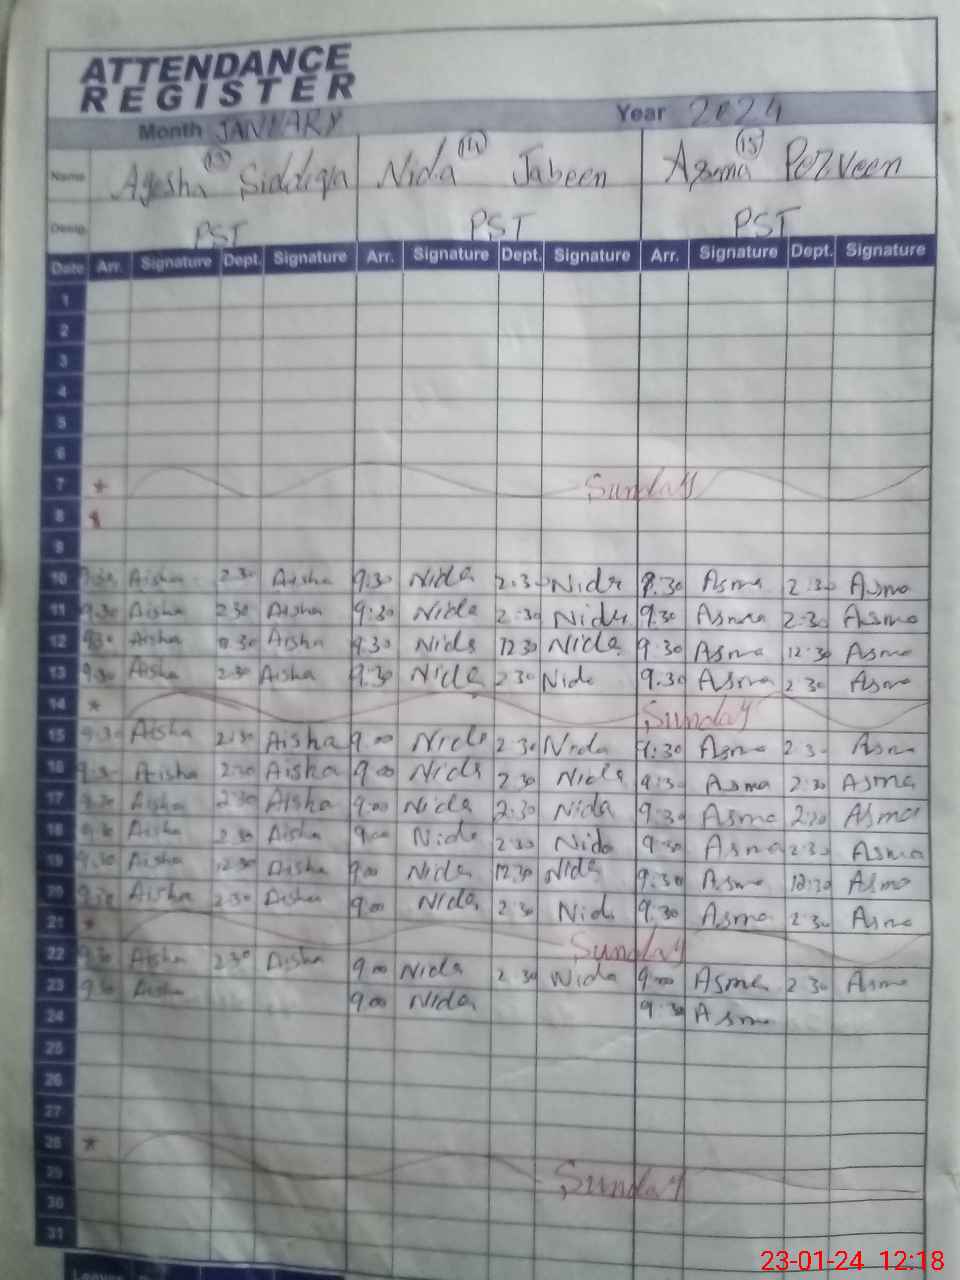 ATTENDANCE
REGISTER
Month JANUARY Year 2024
Name Ayesha (13) Siddiqa Nida (14) Jabeen Asma (15) Perveen
Desig. PST PST PST
Date Arr. Signature Dept. Signature Arr. Signature Dept. Signature Arr. Signature Dept. Signature
1
2
3
4
5
6
7 * Sunday
8
9
10 9:30 Aisha 2 30 Aisha 9:30 Nida 2:30 Nida 9:30 Asma 2:30 Asma
11 9:30 Aisha 2 30 Aisha 9:30 Nida 2:30 Nida 9:30 Asma 2:30 Asma
12 9:30 Aisha Aisha 9:30 Nida 12 30 Nida 9:30 Asma 12:30 Asma
13 9:30 Aisha 2:30 Aisha 9:30 Nida 2 30 Nida 9:30 Asma 2 30 Asma
14 * Sunday
15 9:30 Aisha 2:30 Aisha 9:00 Nida 2:30 Nida 9:30 Asma 2:30 Asma
16 9:30 Aisha 2:30 Aisha 9:00 Nida 2 30 Nida 9:30 Asma 2:30 Asma
17 9:30 Aisha 2:30 Aisha 9:00 Nida 2:30 Nida 9:30 Asma 2:30 Asma
18 9:30 Aisha 2:30 Aisha 9:00 Nida 2:30 Nida 9:30 Asma 2:30 Asma
19 9:30 Aisha 12:30 Aisha 9:00 Nida 12:30 Nida 9:30 Asma 12:30 Asma
20 9:30 Aisha 2:30 Aisha 9:00 Nida 2:30 Nida 9:30 Asma 2:30 Asma
21 * Sunday
22 9:30 Aisha 2:30 Aisha 9:00 Nida 2:30 Nida 9:00 Asma 2:30 Asma
23 9:30 Aisha 9:00 Nida 9:30 Asma
24
25
26
27
28 * Sunday
29
30
31
23-01-24 12:18